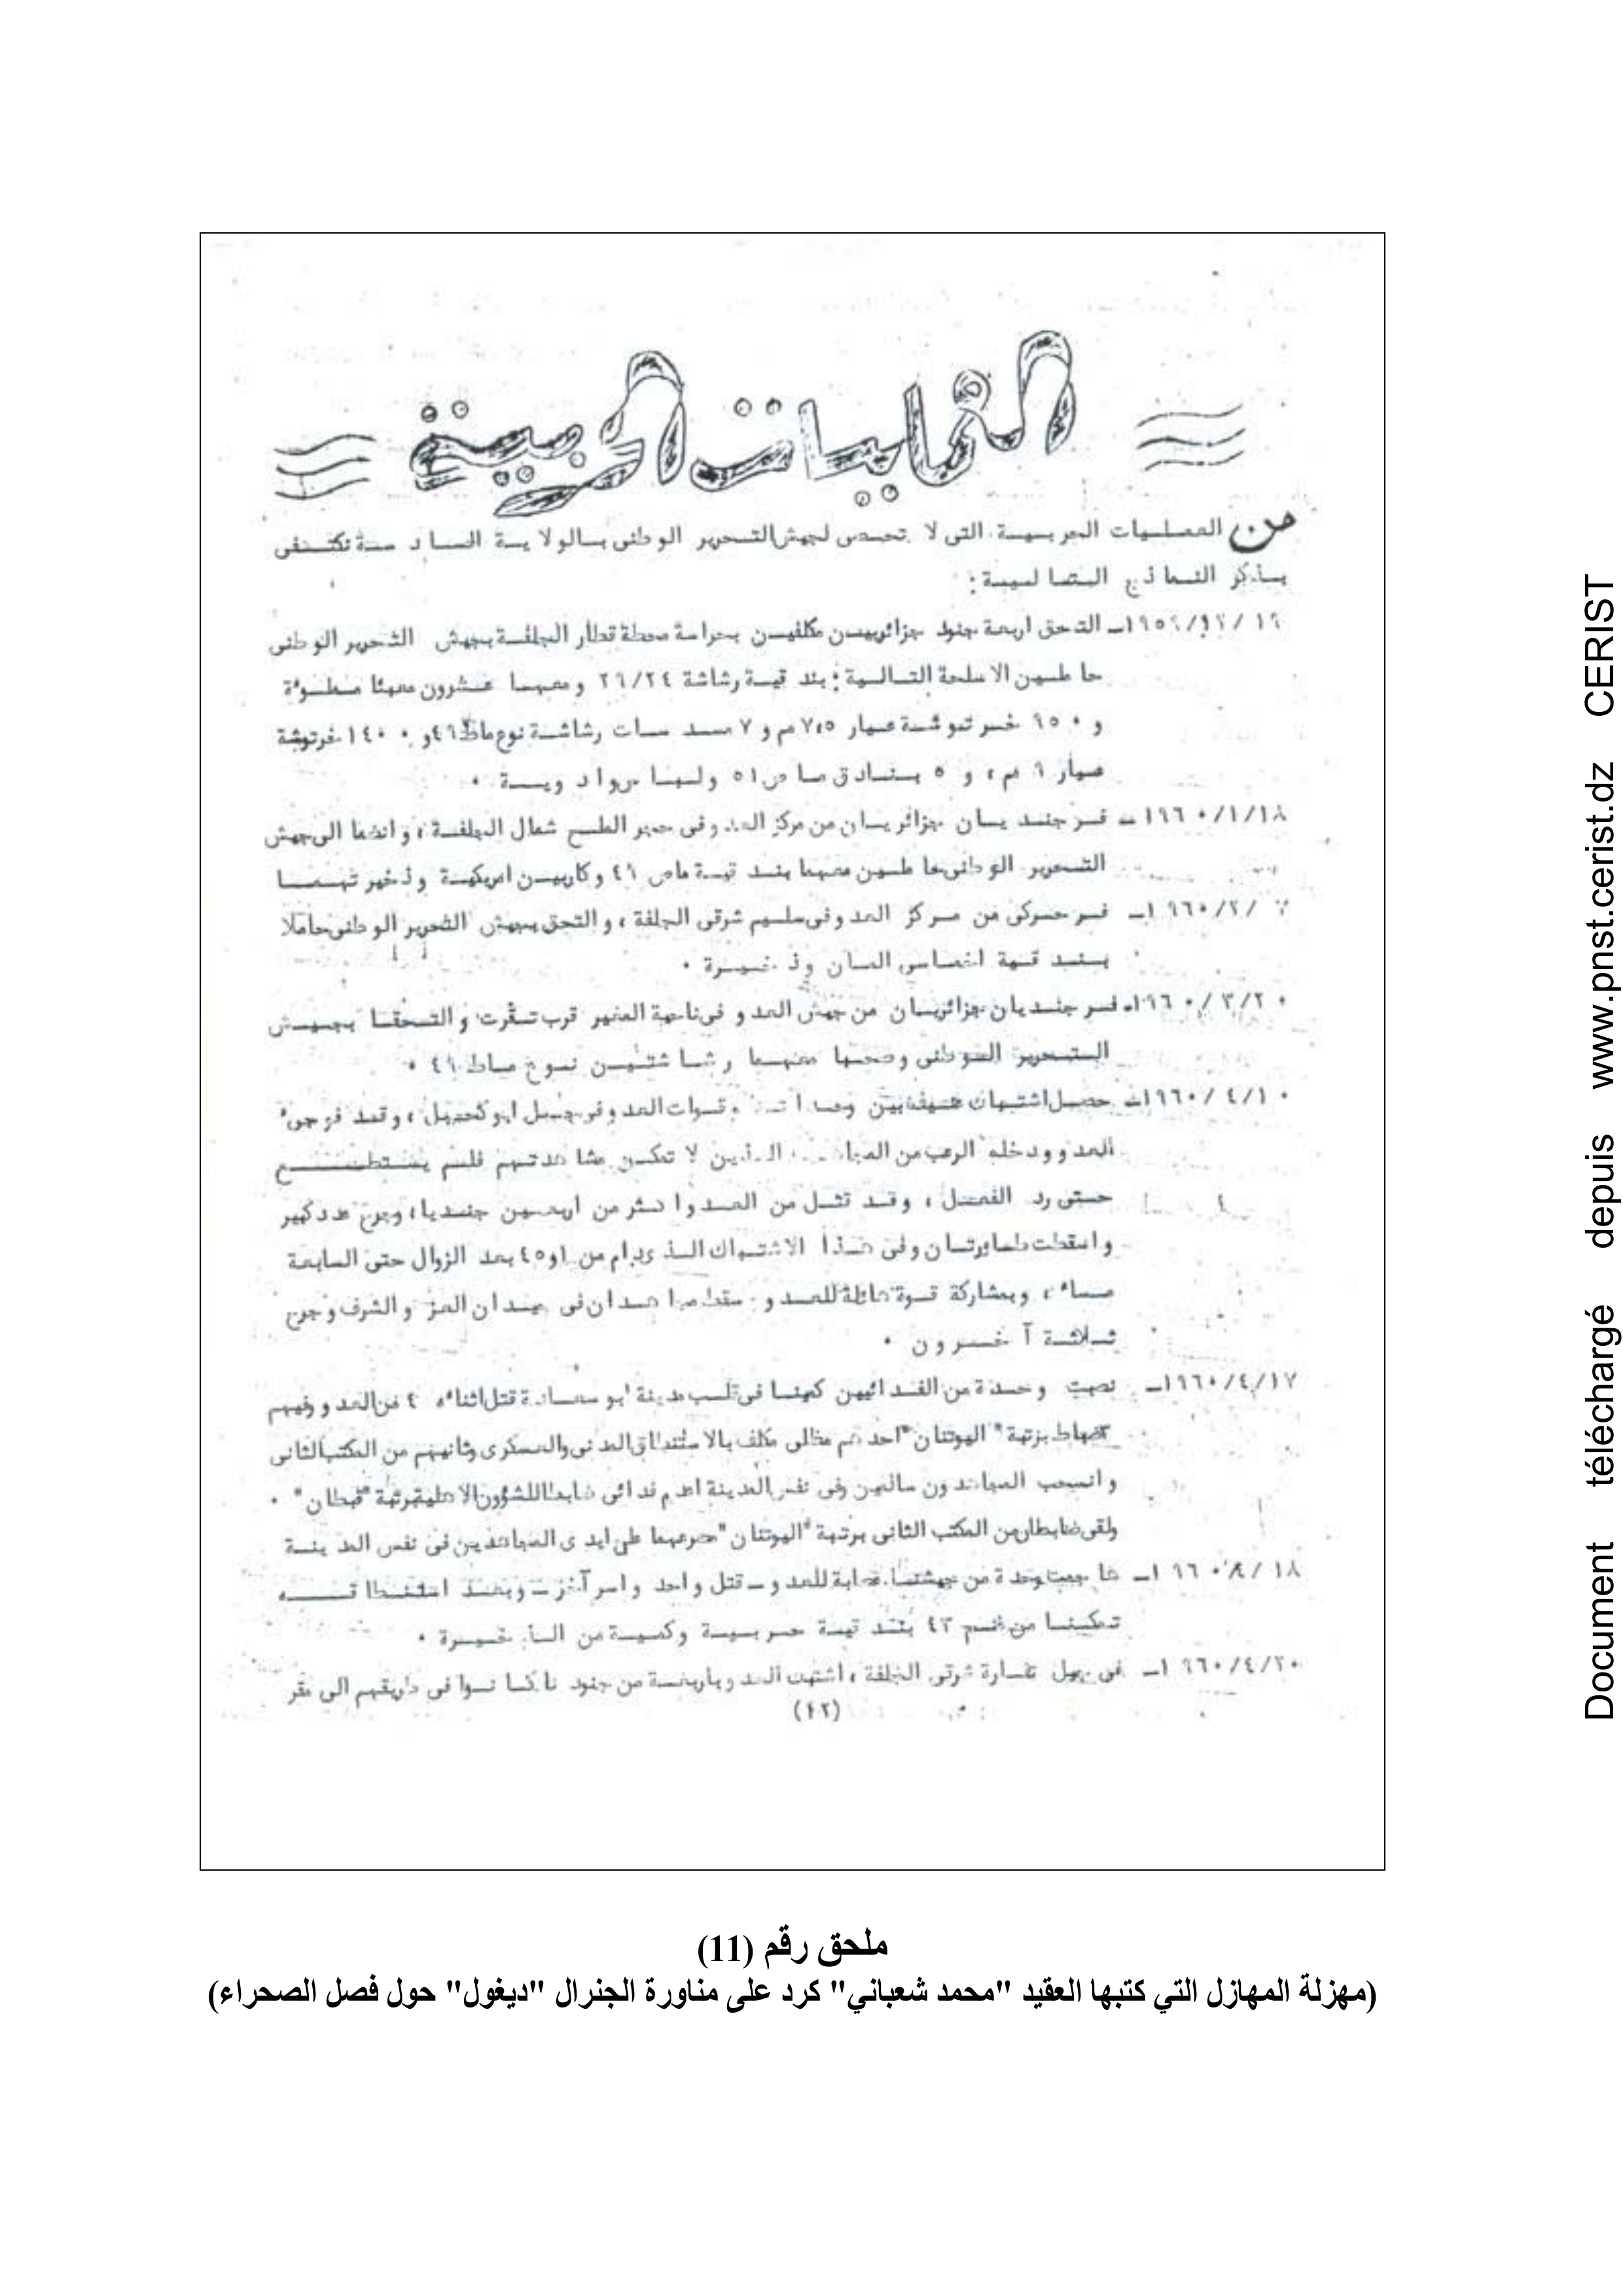 العمليات الحربية
من العمليات الحربية التي لا تحصى لجيش التحرير الوطني بالولاية السادسة نكتفي
بذكر النماذج التالية:
التحق اربعة جنود جزائريين مكلفين بحراسة محطة قطار الجلفة بجيش التحرير الوطني
حاملين الاسلحة التالية: بندقية رشاشة ٢٤/٢٩ ومعهما عشرون معبئا مملوءة
عيار ٧،٥ م و ٧ مسدسات رشاشة نوع ماط ٤٩ و ١٤٠٠ خرتوشة
عيار ٩ م، و ٥ بنادق ماص ٥١ ولباس وادوية ٠
١٩٦٠/١/١٨ــ فر جنديان جزائريان من مركز العدو في حجر الملح شمال الجلفة، وانضما الى جيش
التحرير الوطني حاملين معهما بندقية ماص ٤٩ وكاربين امريكية وذخيرتهما
١٩٦٠/٢/٧ــ فر حركي من مركز العدو في سليم شرقي الجلفة، والتحق بجيش التحرير الوطني حاملا
بندقية وذخيرة ٠
١٩٦٠/٣/٢٠ــ فر جنديان جزائريان من جيش العدو في ناحية المغير قرب تقرت والتحقا بجيش
التحرير الوطني وصحبا معهما رشاشتين نوع ماط ٤٩ ٠
١٩٦٠/٤/١٠ــ حصل اشتباك عنيف بين وحداتنا وقوات العدو في جبل ابو كحيل، وقد فوجئ
العدو ودخله الرعب من الذين لا تمكن مشاهدتهم فلم يستطع
حتى رد الفعل، وقد قتل من العدو اكثر من اربعين جنديا، وجرح عدد كبير
واسقطت طائرتان وفي هذا الاشتباك الذي دام من ١ و٤٥ بعد الزوال حتى السابعة
مساء، وبمشاركة قوة هائلة للعدو سقط مجاهدان في ميدان العز والشرف وجرح
ثلاثة آخرون ٠
١٩٦٠/٤/١٧ــ نصبت وحدة من الفدائيين كمينا في قلب مدينة ابو سعادة قتل اثناءه ٤ من العدو وفيهم
ضباط برتبة "اليوتنان" احدهم مظلي مكلف بالاستنطاق المدني والعسكري وثانيهم من المكتب الثاني
وانسحب المجاهدون سالمين وفي نفس المدينة اعدم فدائي ضابطا للشؤون الاهلية برتبة "قبطان" ٠
ولقي ضابطان من المكتب الثاني برتبة "اليوتنان" مصرعهما على ايدي المجاهدين في نفس المدينة
هاجمت وحدة من جيشنا للعدو ــ قتل واحد واسر آخر ــ وبعد استنطاقه
تمكنا من غنم ٤٣ بندقية حربية وكمية من الذخيرة ٠
١٩٦٠/٤/٢٠ــ في جبل شرقي الجلفة، اشتبك العدو باربعة من جنودنا كانوا في طريقهم الى مقر
(٤٢)
ملحق رقم (11)
(مهزلة المهازل التي كتبها العقيد "محمد شعباني" كرد على مناورة الجنرال "ديغول" حول فصل الصحراء)
Document téléchargé depuis www.pnst.cerist.dz CERIST